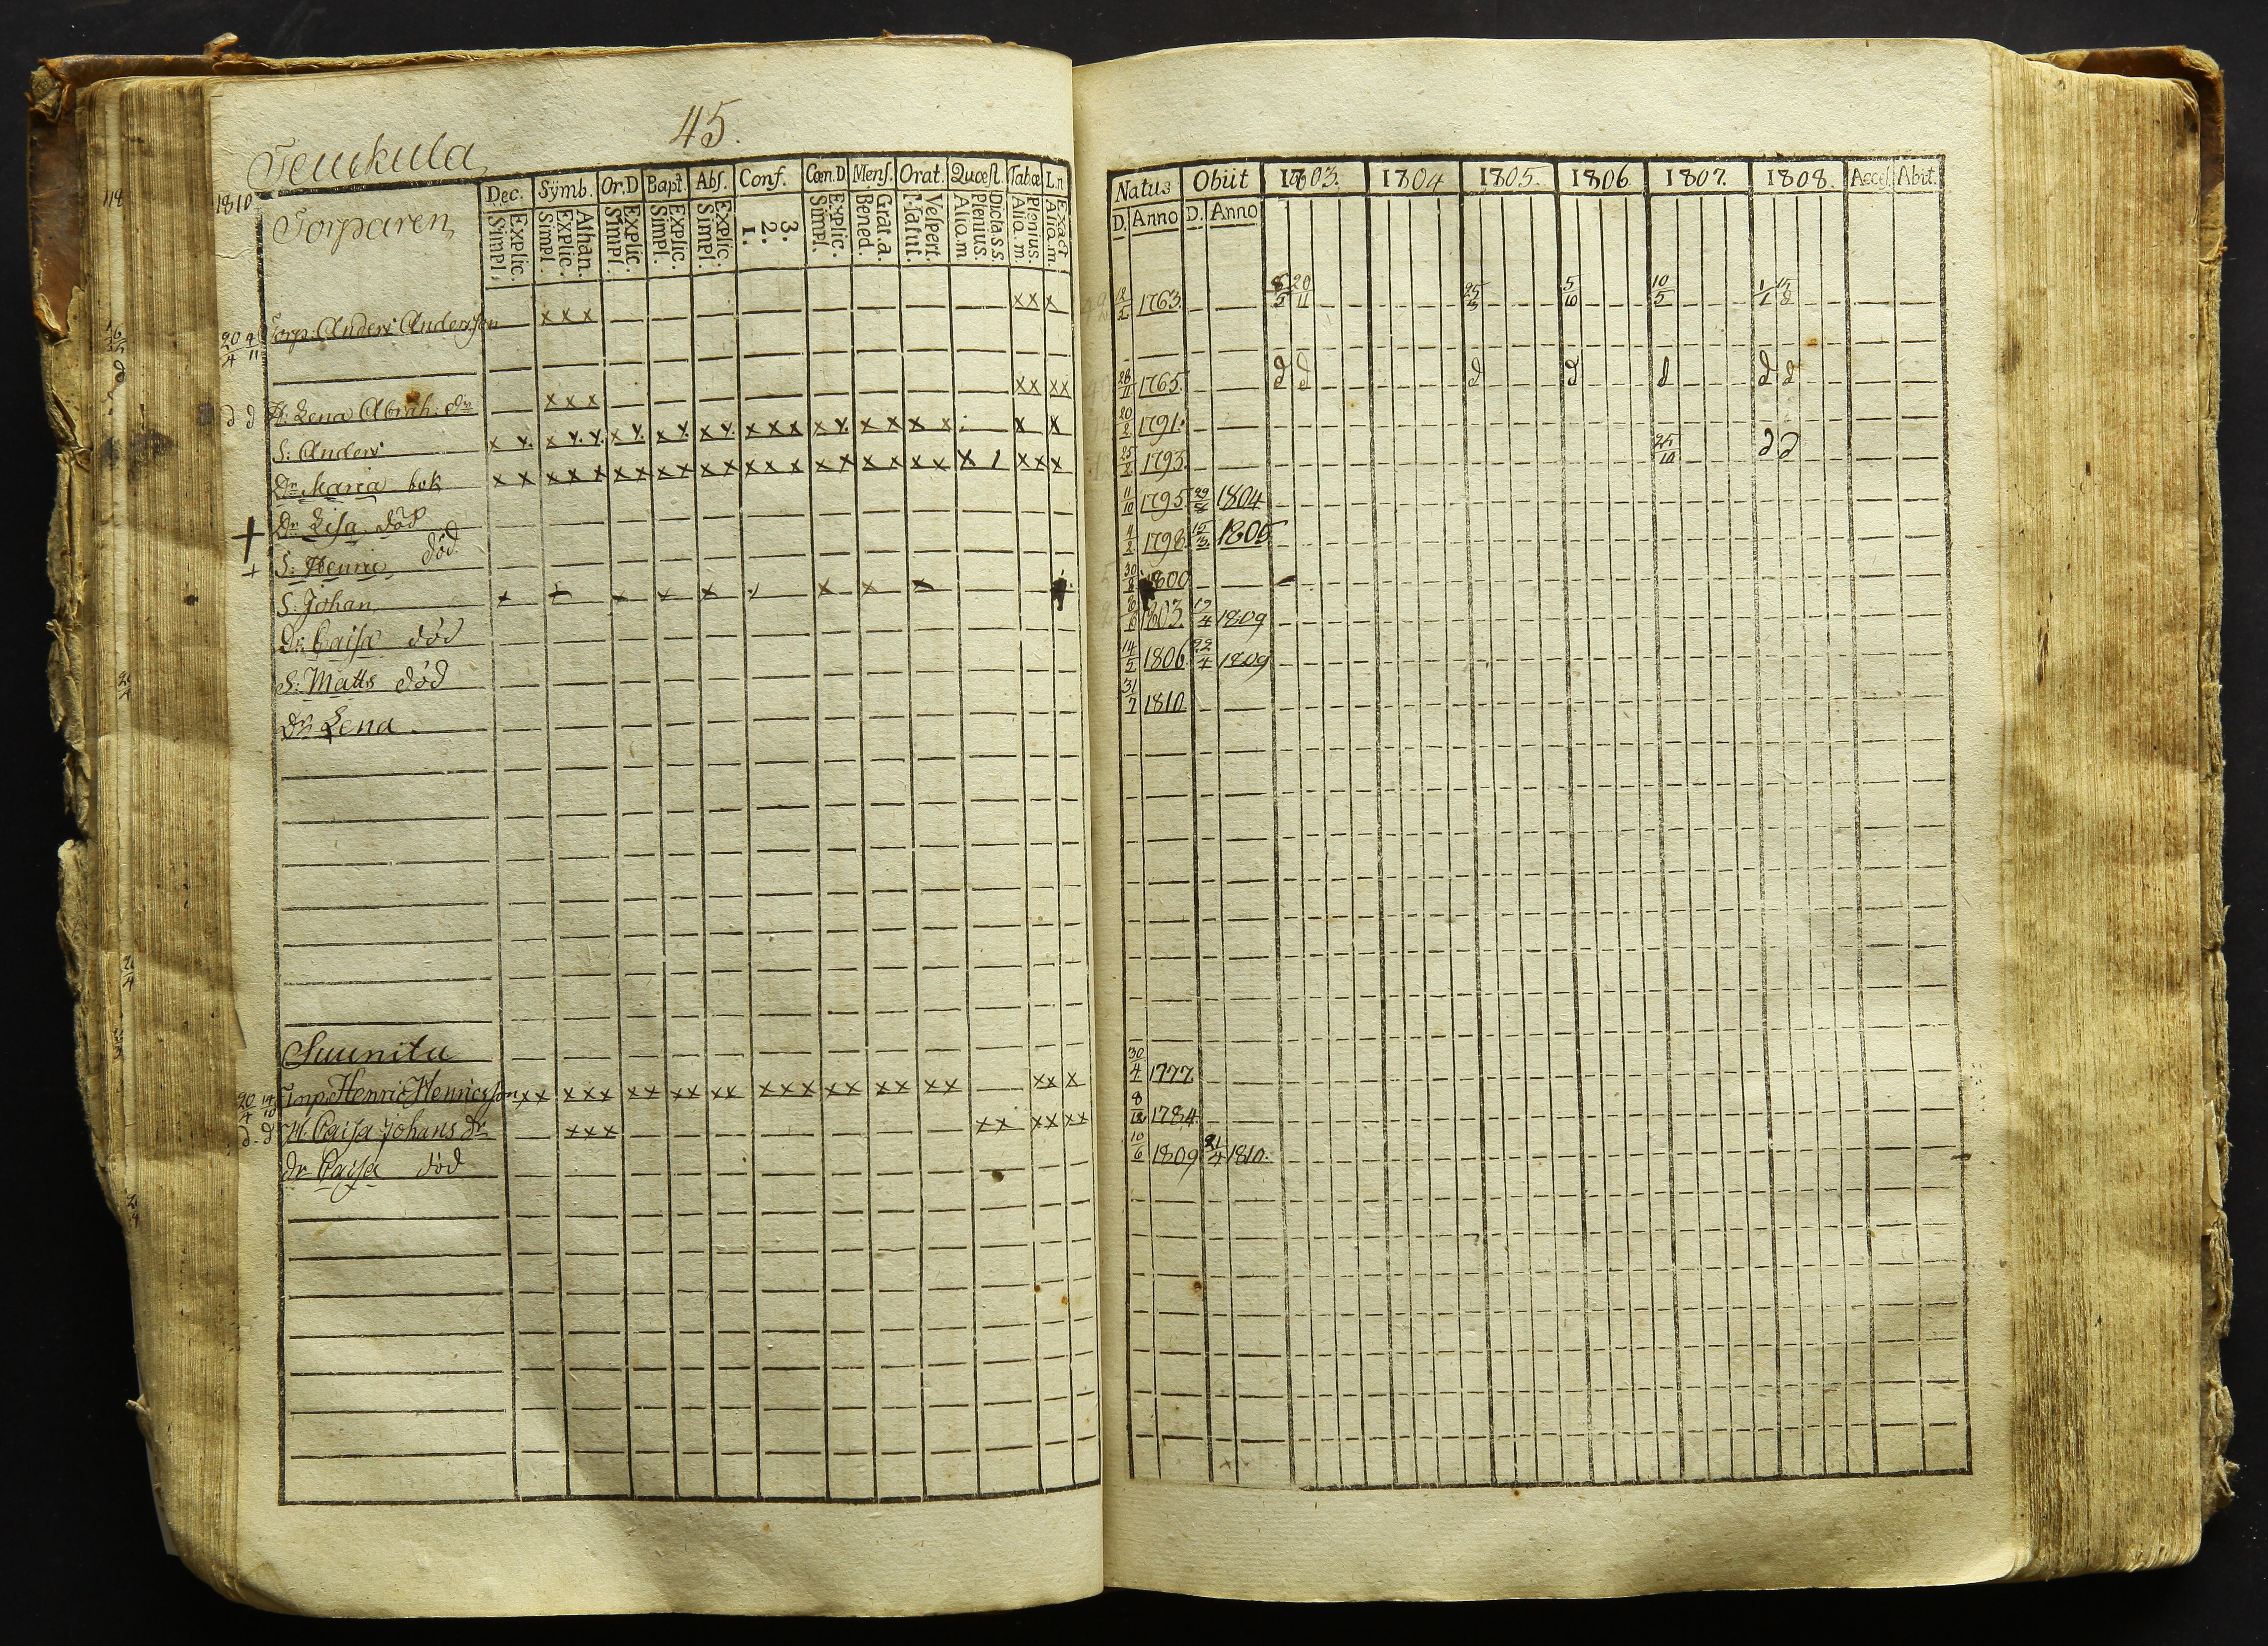 45.
Torparen
1810
Dec. Symb. Or.D Bapt. Abs. Conf. Cœn.D Mens. Orat. Quæst. Tabæ L.n
Explic. Simpl. Athan. Explic. Simpl. Explic. Simpl. Explic. Simpl. Explic. Simpl. 3. 2. 1. Explic. Simpl. Grat.a. Bened. Vespert. Matut. Dicta.s.s. Plenius. Alio.m Plenius. Alio.m. Exact Alio.m.
Natus Obiit 1803. 1804 1805. 1806 1807. 1808. Acces. Abit.
D. Anno D. Anno
20/4 4/11 Torp: Anders Andersson x x x x x x 1763. 20/11 25/3 5/10 10/5
d d H: Lena Abrah: dr x x x x x x x 28/11 1765. d d d d d d d
S: Anders x x x x x x x x x x x x x x x x x x x x x 20/2 1791.
Dr Maria bok x x x x x x x x x x x x x x x x x x x x x 1 x x x 25/2 1793. 25/10 d d
+ Dr Lisa död 11/10 1795 29/8 1804
+ S: Henric död 4/2 1798 15/3 1805
S: Johan x x x x x x x x 1800
Dr: Caisa död 1803. 19/4 1809
S: Matts död 14/5 1806 22/4 1809
Dr Lena 31/7 1810
Suunita
20/4 14/10 Torp: Henric Henricsson x x x x x x x x x x x x x x x x x x x x x x x 30/4 1777
d. d H. Caisa Johans dr x x x x x x x x x 8/12 1784
dr Caisa död 10/6 1809 21/4 1810.